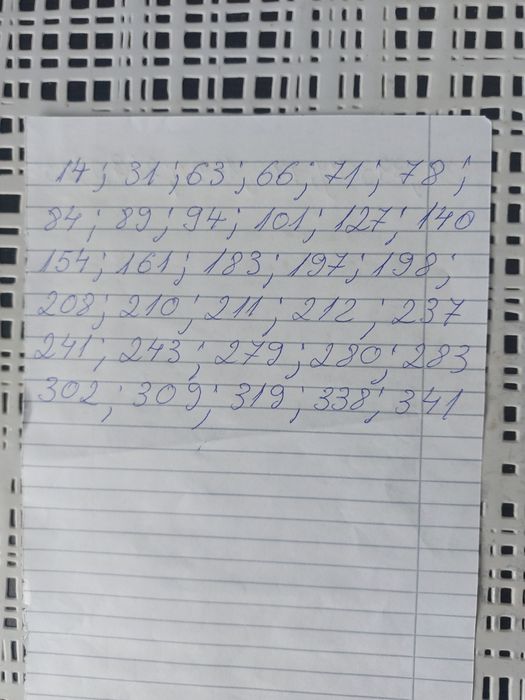 14; 31; 63; 66; 71; 78;
84; 89; 94; 101; 127; 140
154; 161; 183; 197; 198;
208; 210; 211; 212; 237
241; 243; 279; 280; 283
302; 309; 319; 338; 341